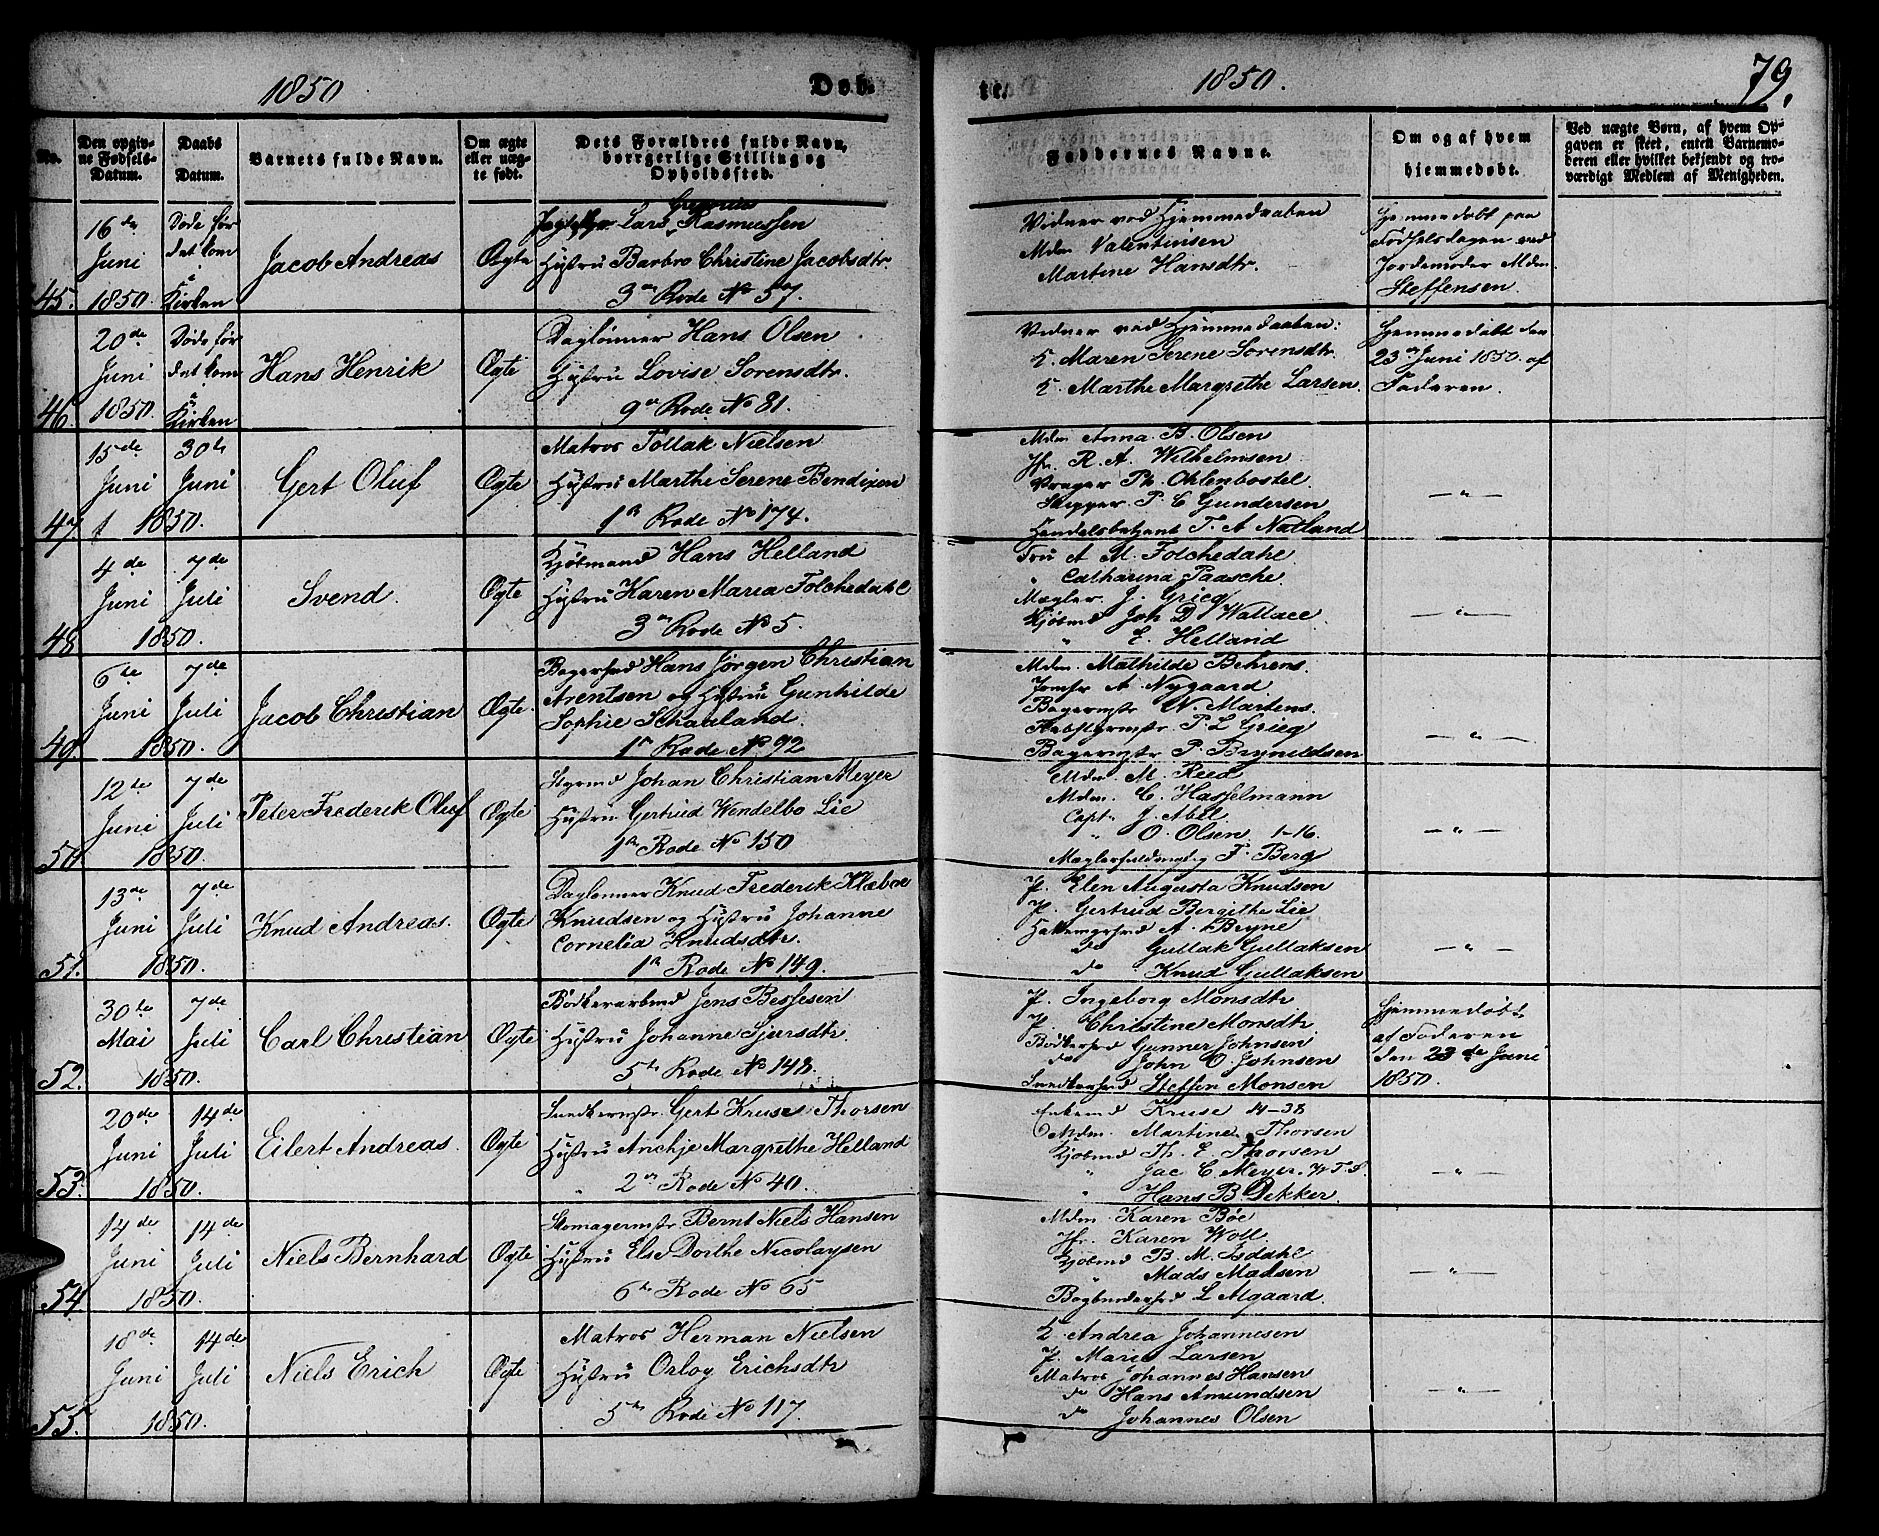 1850 Døb-
No. Den opgivne Fødsels-Datum. Daabs Datum. Barnets fulde Navn. Om ægte eller uægte født. Dets Forældres fulde Navn, borrgerlige Stilling og Opholdssted.
45. 16de Juni 1850. Døde før det kom i Kirken Jacob Andreas Ægte Lars Rasmussen
Hustru Barbro Christine Jacobsdtr.
3die Rode No 57.
46. 20de Juni 1850. Døde før det kom i Kirken Hans Henrik Ægte Daglønner Hans Olsen
Hustru Lovise Sørensdtr.
9de Rode No 81.
47. 15de Juni 30te Juni 1850. Gert Oluf Ægte Matros Tollak Nielsen
Hustru Marthe Serene Bendixen
1ste Rode No 174.
48. 4de Juni 7de Juli 1850. Svend. Ægte Kjøbmand Hans Helland
Hustru Karen Maria Folchedahl
3die Rode No 5.
49. 6te Juni 7de Juli 1850. Jacob Christian Ægte Bagersvd Hans Jørgen Christian
Arentsen og Hustru Gunhilde
Sophie Schaaland.
1ste Rode No 92
50. 12te Juni 7de Juli 1850. Peter Frederik Oluf Ægte Styrmd Johan Christian Meyer
Hustru Gertrud Wendelbo Lie
1ste Rode No 150
51. 13de Juni 7de Juli 1850. Knud Andreas. Ægte Daglønner Knud Frederik Klæboe
Knudsen og Hustru Johanne
Cornelia Knudsdtr.
1ste Rode No 149.
52. 30te Mai 7de Juli 1850. Carl Christian Ægte Bødkerarbmd Jens Bessesen
Hustru Johanne Sjursdtr.
5te Rode No 148.
53. 20de Juni 14de Juli 1850. Eilert Andreas. Ægte Snedkermstr. Gert Kruse Thorsen
Hustru Anchje Margrethe Helland
2den Rode No 40.
54 14de Juni 14de Juli 1850. Niels Bernhard Ægte Skomagermstr Bernt Niels Hansen
Hustru Else Dorthe Nicolaysen
6te Rode No 65
55. 18de Juni 14de Juli 1850. Niels Erich Ægte Matros Herman Nielsen
Hustru Orloy Erichsdtr
5te Rode No 117.
te. 1850. 79.
Faddernes Navne. Om og af hvem hiemmedøbt. Ved uægte Børn, af hvem Opgaven er skeet, enten Barnemoderen eller hvilket bekjendt og troværdigt Medlem af Menigheden.
Vidner ved Hjemmedaaben Hjemmedøbt paa
Mdm Valentinsen Fødselsdagen ved
Martine Hansdtr. Jordemoder Mdm.
Steffensen.
Vidner ved Hjemmedaaben: Hjemmedøbt den
K. Maren Serene Sørensdtr. 23de Juni 1850. af
K. Marthe Margrethe Larsen. Faderen.
Mdm Anna B. Olsen
Jfr. R. A. Wilhelmsen
Vrager Th. Ohlenbostel.
Skipper P. C Gundersen — " —
Handelsbetjent T. A Natland
Fru A M. Folchedahl
" Catharina Paasche.
Mægler J. Grieg
Kjøbmd Joh D Wallace. — " —
" E. Helland
Mdm. Mathilde Behrens.
Jomfr A Nygaard
Bagermstr W. Martens.
P. L Grieg — " —
Bagermstr P. Brynildsen
Mdm M. Reed
Mdm. C. Hasselmann
Capt. J. Abel.
" O. Olsen 1-16. — " —
Mæglerfuldmgtig F. Berg
P. Elen Augusta Knudsen
P. Gertrud Bergithe Lie
A. Bryne
do Gullak Gullaksen — " —
do Knud Gullaksen
P. Ingeborg Monsdtr Hjemmedøbt
P. Christine Monsdtr. af Faderen
Bødkersvd Gunner Johnsen den 23de Juni
do John O. Johnsen 1850.
Snedkersvd Steffen Monsen
Enkemd Kruse 14-38
Mdm. Martine Thorsen
Kjøbmd Th. E Thorsen
" Jac C. Meyer. W.T.S. — " —
" Hans B. Dekker.
Mdm. Karen Bøe
Jfr. Karen Woll
Kjøbmd B. M. Isdahl
" Mads Madsen — " —
Bogbindersvd L Algaard.
K. Andrea Johannesen
P. Marie Larsen
Matros Johannes Hansen
do Hans Amundsen — " —
do Johannes Olsen